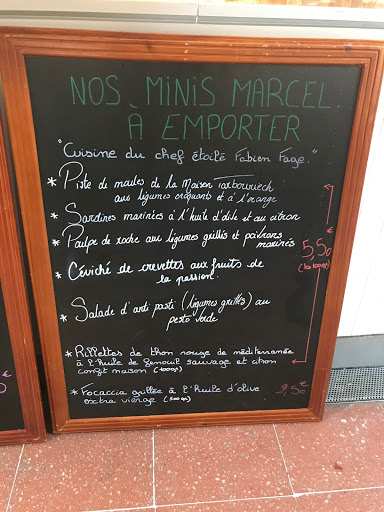 NOS MINIS MARCEL
À EMPORTER
"Cuisine du chef étoilé Fabien Fage."
* Piste de moules de la Maison Tarbouriech
aux légumes croquants et à l'orange
* Sardines marinées à l'huile d'olive et au citron
* Poulpe de roche aux légumes grillés et poivrons
marinés
5,50€
(100gr)
* Céviché de crevettes aux fruits de
la passion.
* Salade d'anti pasti (légumes grillés) au
pesto verde
* Rillettes de thon rouge de méditerranée
à l'huile de fenouil sauvage et citron
confit maison (100gr)
* Focaccia grillée à l'huile d'olive 2,50€
extra vierge (500gr)